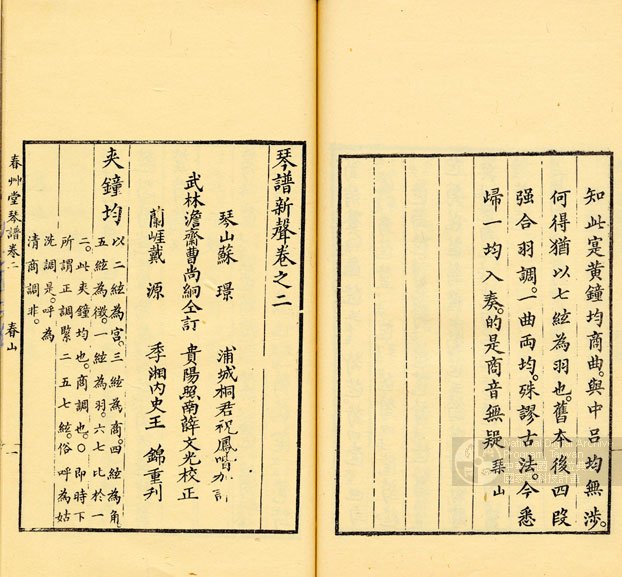 知此寔黃鐘均商曲。與中呂均無涉。
何得猶以七絃為羽也。舊本後四段
强合羽調。一曲両均。殊謬古法。今悉
歸一均入奏。的是商音無疑 琹山
琴譜新聲卷之二
琴山蘇 璟 浦城桐君祝鳳喈加訂
武林澹齋曹尚絅仝訂 貴陽照南薛文光校正
蘭崕戴 源 季湘內史王 錦重刋
夾鐘均
以二絃為宮。三絃為商。四絃為角。
五絃為徵。一絃為羽。六七比於一
二。此夾鐘均也。商調也。〇即時下
所謂正調緊二五七絃。俗呼為姑
洗調是。呼為
清商調非。
春艸堂琴譜卷二 春山 一
National Digital Archives
Program, Taiwan